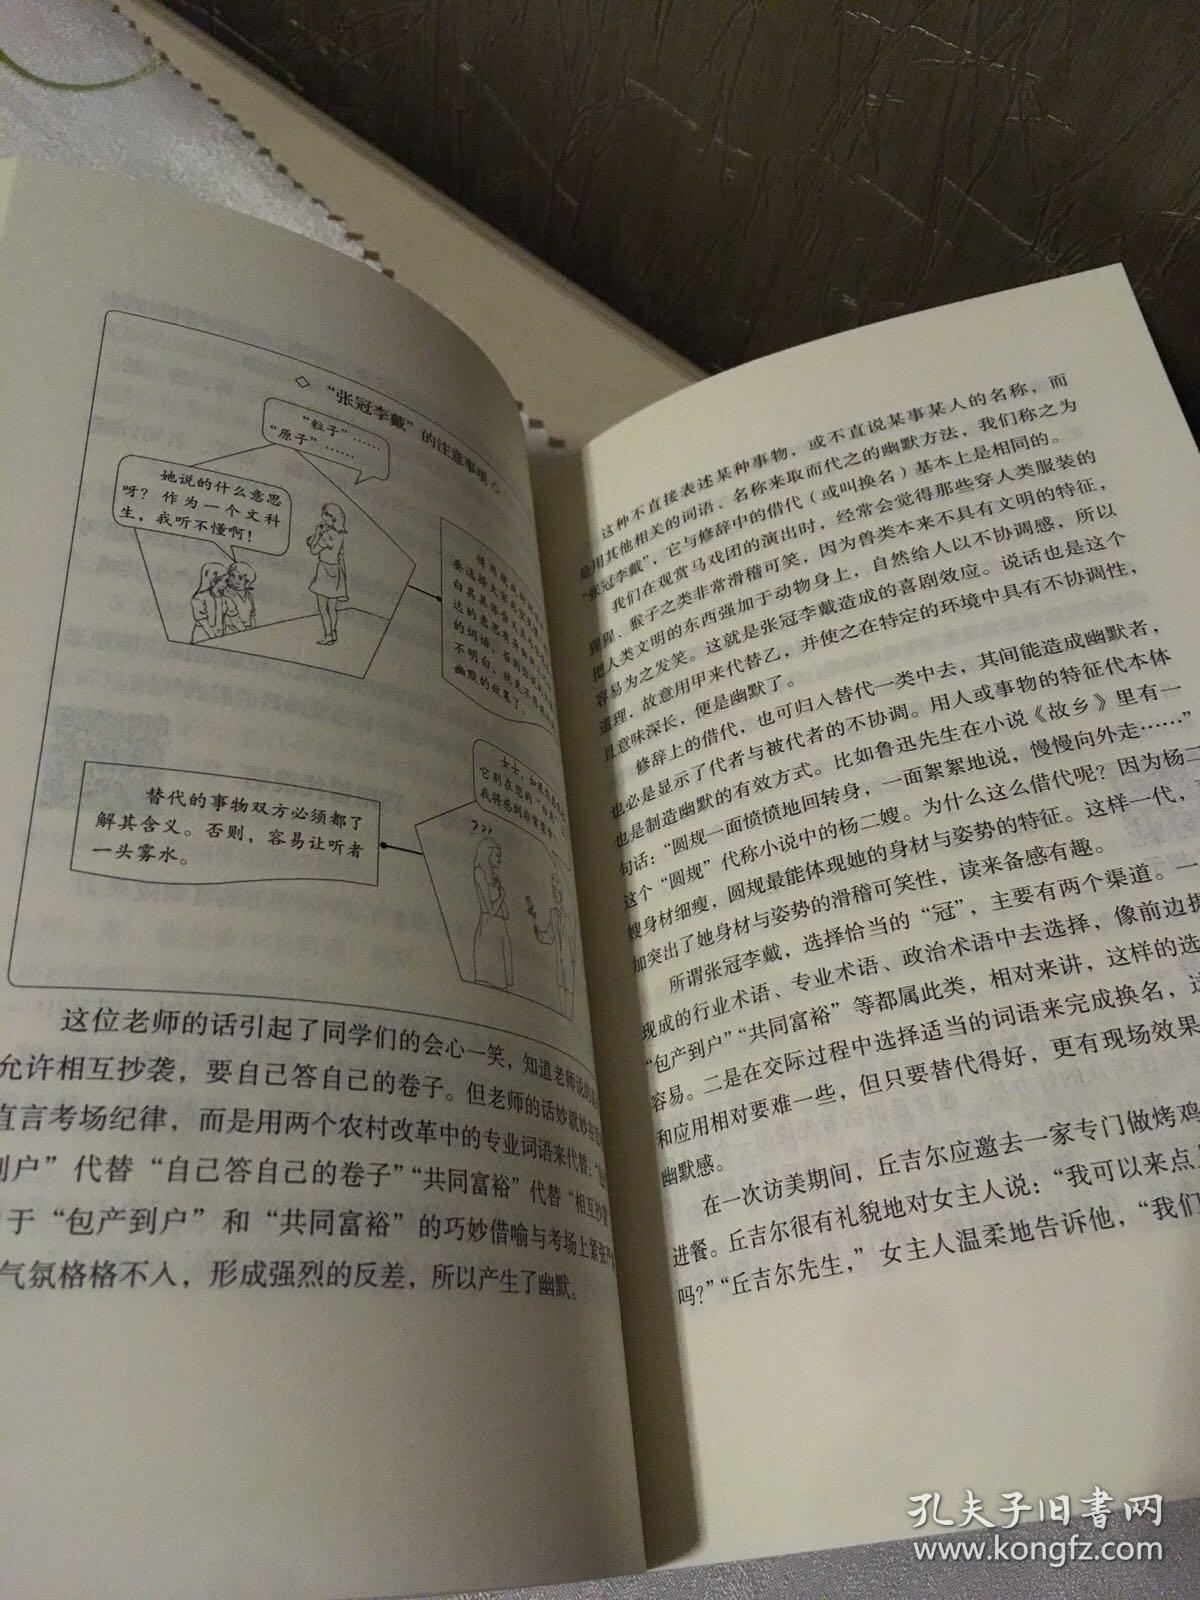 ◇ “张冠李戴”的注意事项 ◇
“粒子”……
“原子”……
她说的什么意思
呀？作为一个文科
生，我听不懂啊！
要选择大家
达的意思有
的词语，否则
不明白，就
幽默的效果了。
替代的事物双方必须都了
解其含义。否则，容易让听者
一头雾水。
女士，如果
它别在您的“
我将感到非常荣幸！
???
这位老师的话引起了同学们的会心一笑，知道老师说的
允许相互抄袭，要自己答自己的卷子。但老师的话妙就妙在
直言考场纪律，而是用两个农村改革中的专业词语来代替：“
到户”代替“自己答自己的卷子”“共同富裕”代替“相互抄袭
于“包产到户”和“共同富裕”的巧妙借喻与考场上紧张
气氛格格不入，形成强烈的反差，所以产生了幽默。
这种不直接表述某种事物，或不直说某事某人的名称，而
是用其他相关的词语、名称来取而代之的幽默方法，我们称之为
“张冠李戴”，它与修辞中的借代（或叫换名）基本上是相同的。
我们在观赏马戏团的演出时，经常会觉得那些穿人类服装的
猩猩、猴子之类非常滑稽可笑，因为兽类本来不具有文明的特征，
把人类文明的东西强加于动物身上，自然给人以不协调感，所以
容易为之发笑。这就是张冠李戴造成的喜剧效应。说话也是这个
道理，故意用甲来代替乙，并使之在特定的环境中具有不协调性，
且意味深长，便是幽默了。
修辞上的借代，也可归入替代一类中去，其间能造成幽默者，
也必是显示了代者与被代者的不协调。用人或事物的特征代本体
也是制造幽默的有效方式。比如鲁迅先生在小说《故乡》里有一
句话：“圆规一面愤愤地回转身，一面絮絮地说，慢慢向外走……”
这个“圆规”代称小说中的杨二嫂。为什么这么借代呢？因为杨二
嫂身材细瘦，圆规最能体现她的身材与姿势的特征。这样一代，
加突出了她身材与姿势的滑稽可笑性，读来备感有趣。
所谓张冠李戴，选择恰当的“冠”，主要有两个渠道。一
现成的行业术语、专业术语、政治术语中去选择，像前边提
“包产到户”“共同富裕”等都属此类，相对来讲，这样的选
容易。二是在交际过程中选择适当的词语来完成换名，这
和应用相对要难一些，但只要替代得好，更有现场效果
幽默感。
在一次访美期间，丘吉尔应邀去一家专门做烤鸡
进餐。丘吉尔很有礼貌地对女主人说：“我可以来点
吗？”“丘吉尔先生，”女主人温柔地告诉他，“我们
孔夫子旧书网
www.kongfz.com